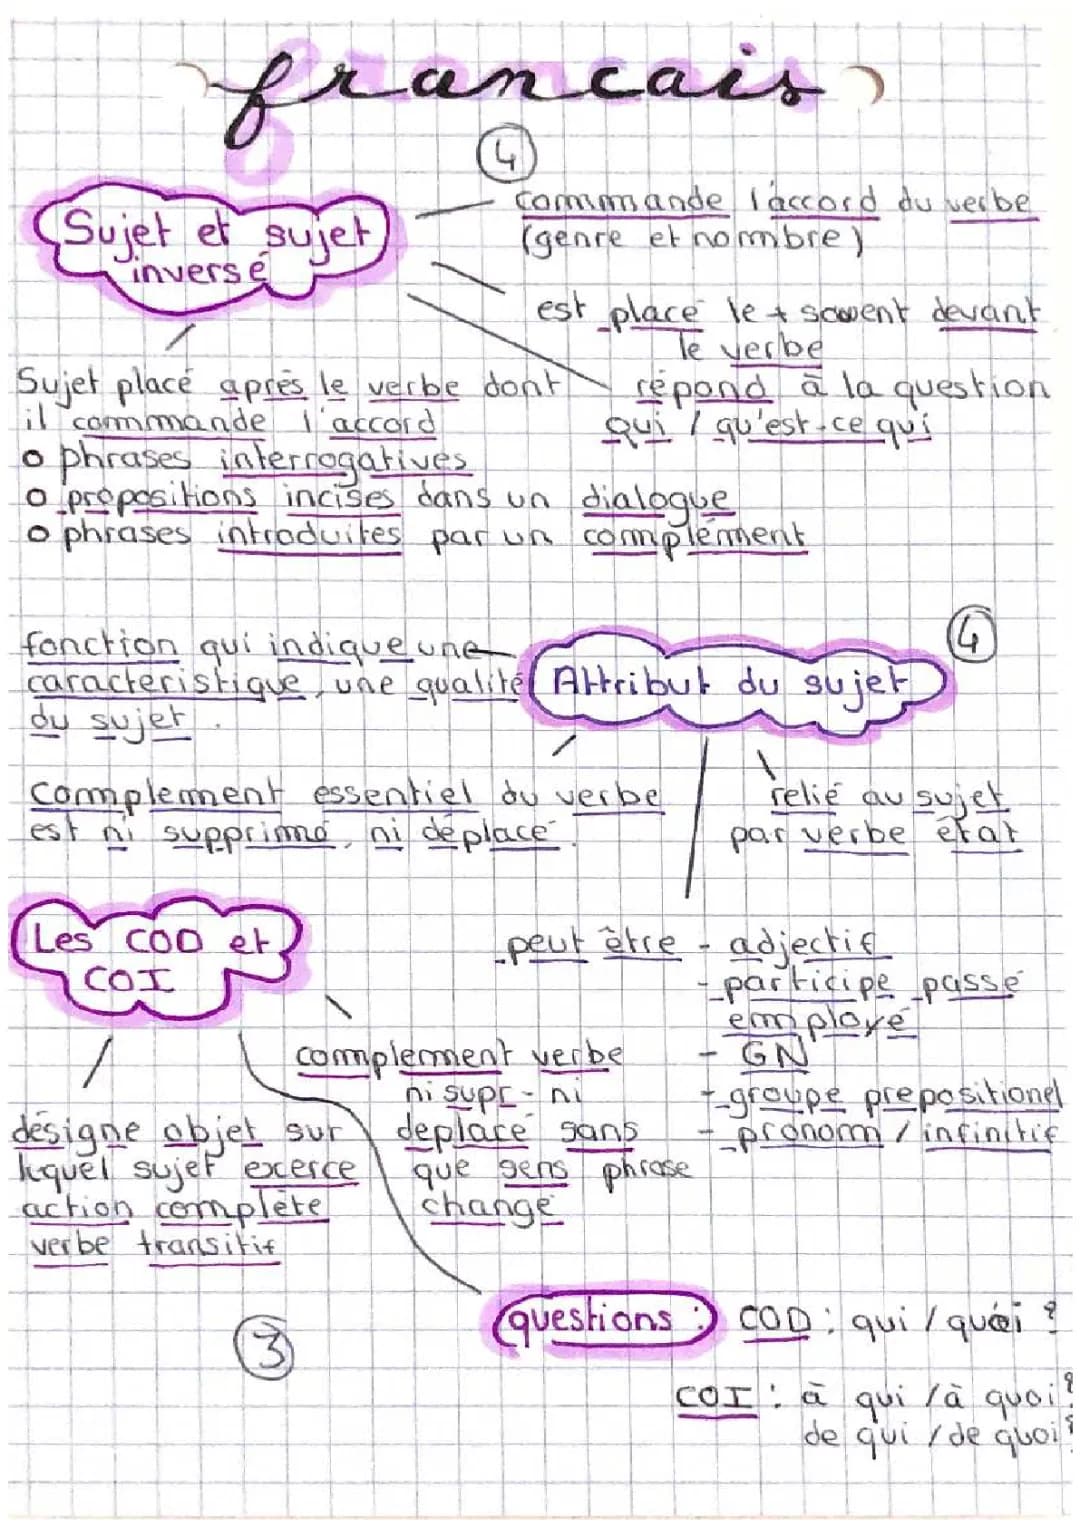 francais
4
Sujet et sujet
inversé
commande l'accord du verbe
(genre et nombre)
est placé le + souvent devant
le verbe
répond à la question
qui / qu'est-ce qui
Sujet placé après le verbe dont
il commande l'accord
o phrases interrogatives
o propositions incises dans un dialogue
o phrases introduites par un complément
4
Attribut du sujet
fonction qui indique une
caracteristique, une qualité
du sujet.
complement essentiel du verbe
est ni supprimé, ni déplacé
relié au sujet
par verbe état
peut être - adjectif
- participe passé
employé
- GN
- groupe prepositionel
- pronom / infinitif
Les COD et
COI
complement verbe
ni supr - ni
deplacé sans
que sens phrase
change
désigne objet sur
lequel sujet excerce
action complète
verbe transitif
3
questions : COD : qui / quoi ?
COI : à qui / à quoi ?
de qui / de quoi ?